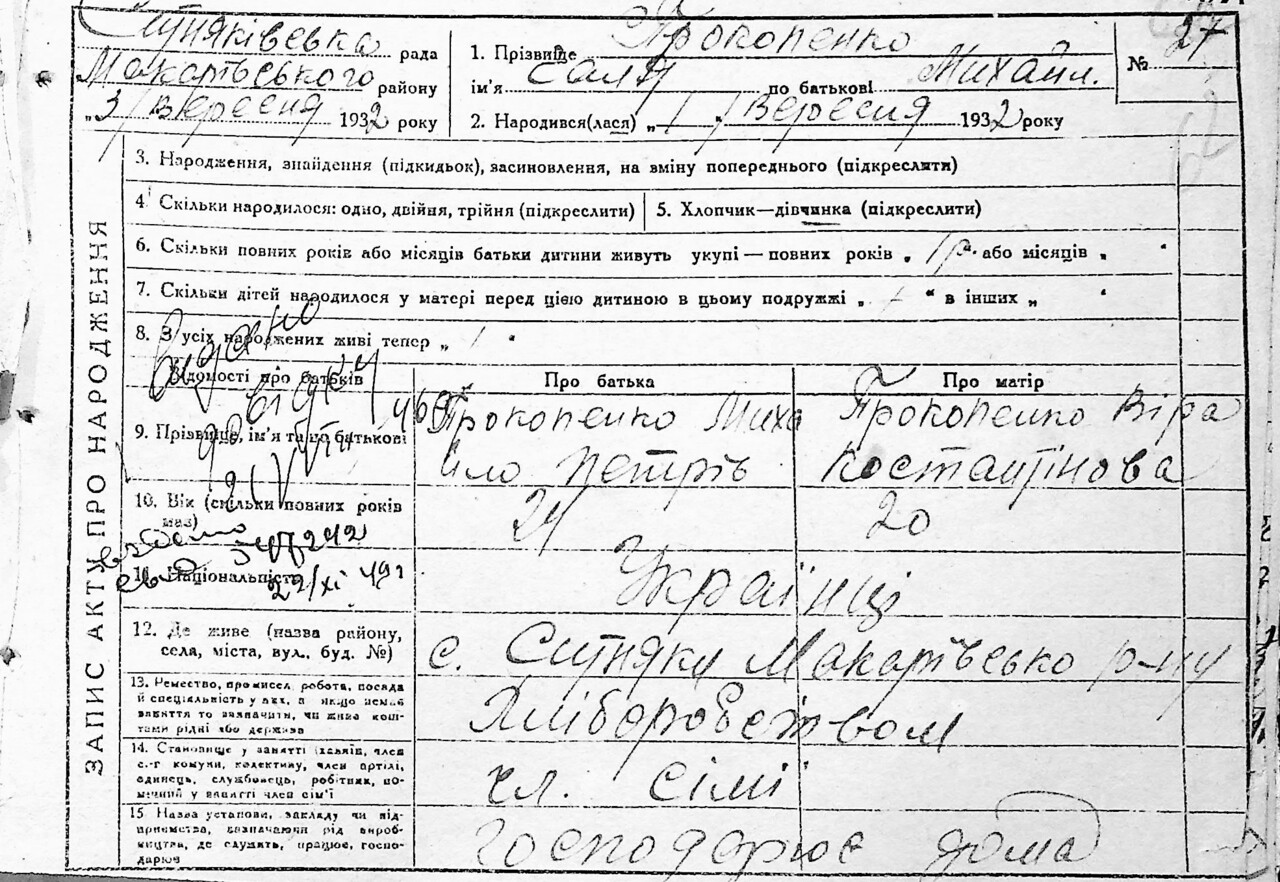 Ситняківська рада
Макарівського району
„3/ Вересня 1932 року
1. Прізвище Прокопенко
ім'я по батькові Михайл.
2. Народився(лася) „1/ Вересня 1932 року
№ 27
ЗАПИС АКТУ ПРО НАРОДЖЕННЯ
3. Народження, знайдення (підкидьок), засиновлення, на вміну попереднього (підкреслити)
4. Скільки народилося: одно, двійня, трійня (підкреслити)
5. Хлопчик—дівчинка (підкреслити)
6. Скільки повних років або місяців батьки дитини живуть укупі — повних років „ 1 р. або місяців „ "
7. Скільки дітей народилося у матері перед цією дитиною в цьому подружжі „ " в інших „ "
8. З усіх народжених живі тепер „ 1 "
Видано
Відомості про батьків
Про батька
Про матір
9. Прізвище, ім'я та по батькові
Прокопенко Миха
йло Петрів
Прокопенко Віра
Костантінова
10. Вік (скільки повних років має)
24
20
22/XI 49
11. Національність
Українці
12. Де живе (назва району,
села, міста, вул., буд. №)
с. Ситняки Макарівсько р-ну
13. Ремество, промисел, робота, посада
й спеціальність у них, а якщо немає
заняття то зазначити, чи живе кош-
тами рідні або держави
Хліборобством
14. Становище у занятті (хазяїв, член
с.-г комуни, колективу, член артілі,
одинець, службовець, робітник, по-
мічний у занятті член сім'ї
чл. сімї
15 Назва установи, закладу чи під-
приємства, зазначаючи рід вироб-
ництва, де служить, працює, госпо-
дарює
господарює дома